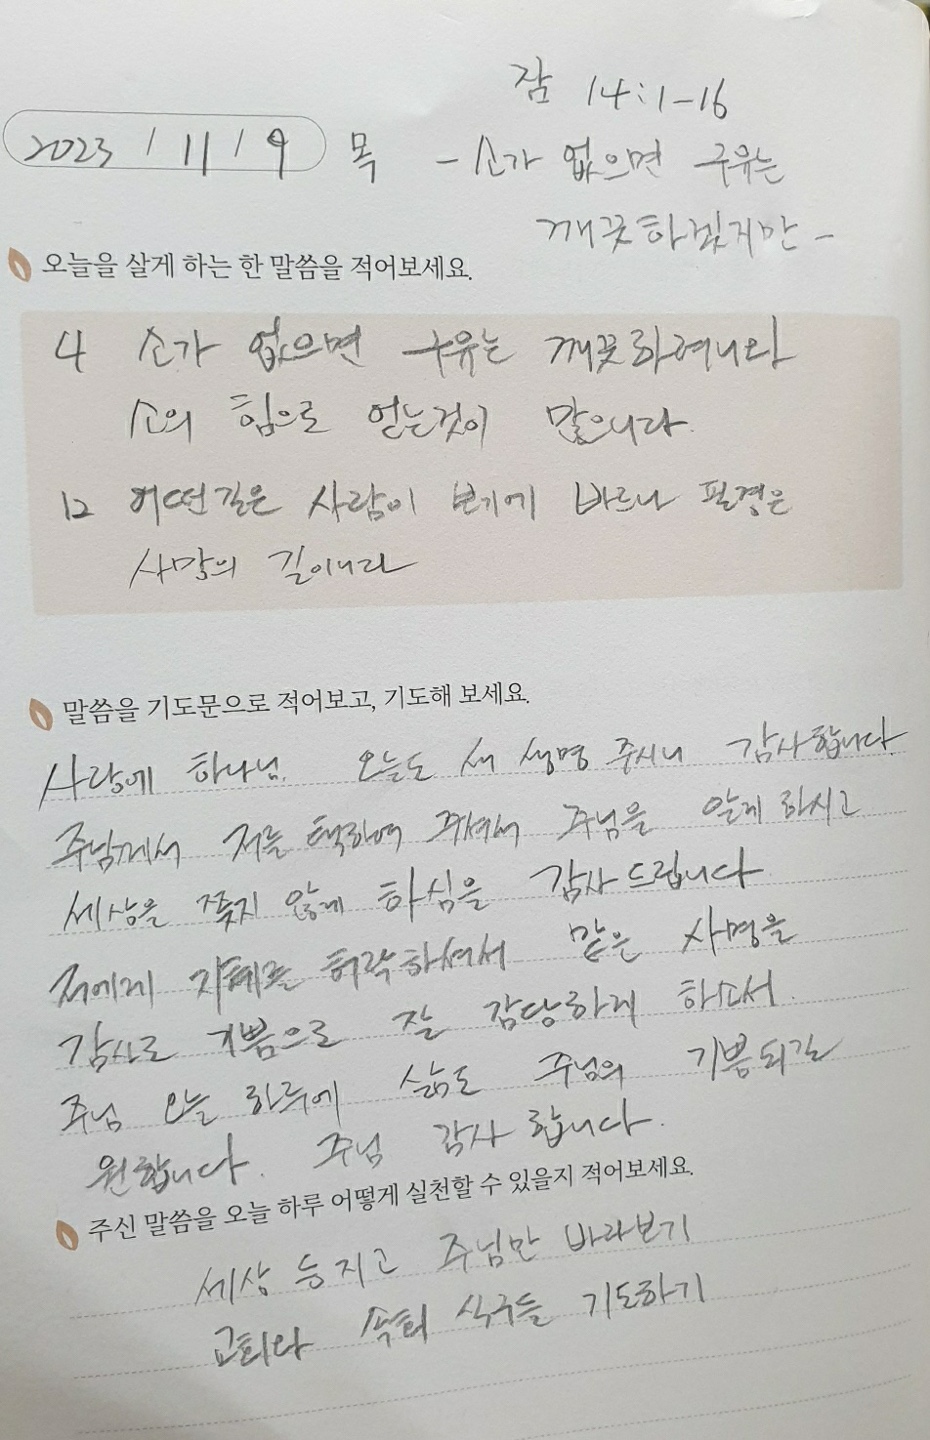 잠 14:1-16
2023 / 11 / 9 목 - 소가 없으면 구유는
깨끗하겠지만 -
오늘을 살게 하는 한 말씀을 적어보세요.
4 소가 없으면 구유는 깨끗하려니와
소의 힘으로 얻는것이 많으니라.
12 어떤길은 사람이 보기에 바르나 필경은
사망의 길이니라
말씀을 기도문으로 적어보고, 기도해 보세요.
사랑에 하나님. 오늘도 새 생명 주시니 감사합니다
주님께서 저를 택하여 주셔서 주님을 알게 하시고
세상을 쫓지 않게 하심을 감사드립니다
저에게 지혜를 허락하셔서 맡은 사명을
감사로 기쁨으로 잘 감당하게 하소서.
주님 오늘 하루에 삶도 주님의 기쁨되길
원합니다. 주님 감사 합니다.
주신 말씀을 오늘 하루 어떻게 실천할 수 있을지 적어보세요.
세상 등지고 주님만 바라보기
교회와 속회 식구들 기도하기